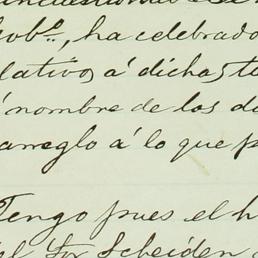 Gob.º, ha celebrado
lativos á dichas te
á nombre de los d
arreglo á lo que p
Tengo pues el h
el Sor Scheiden